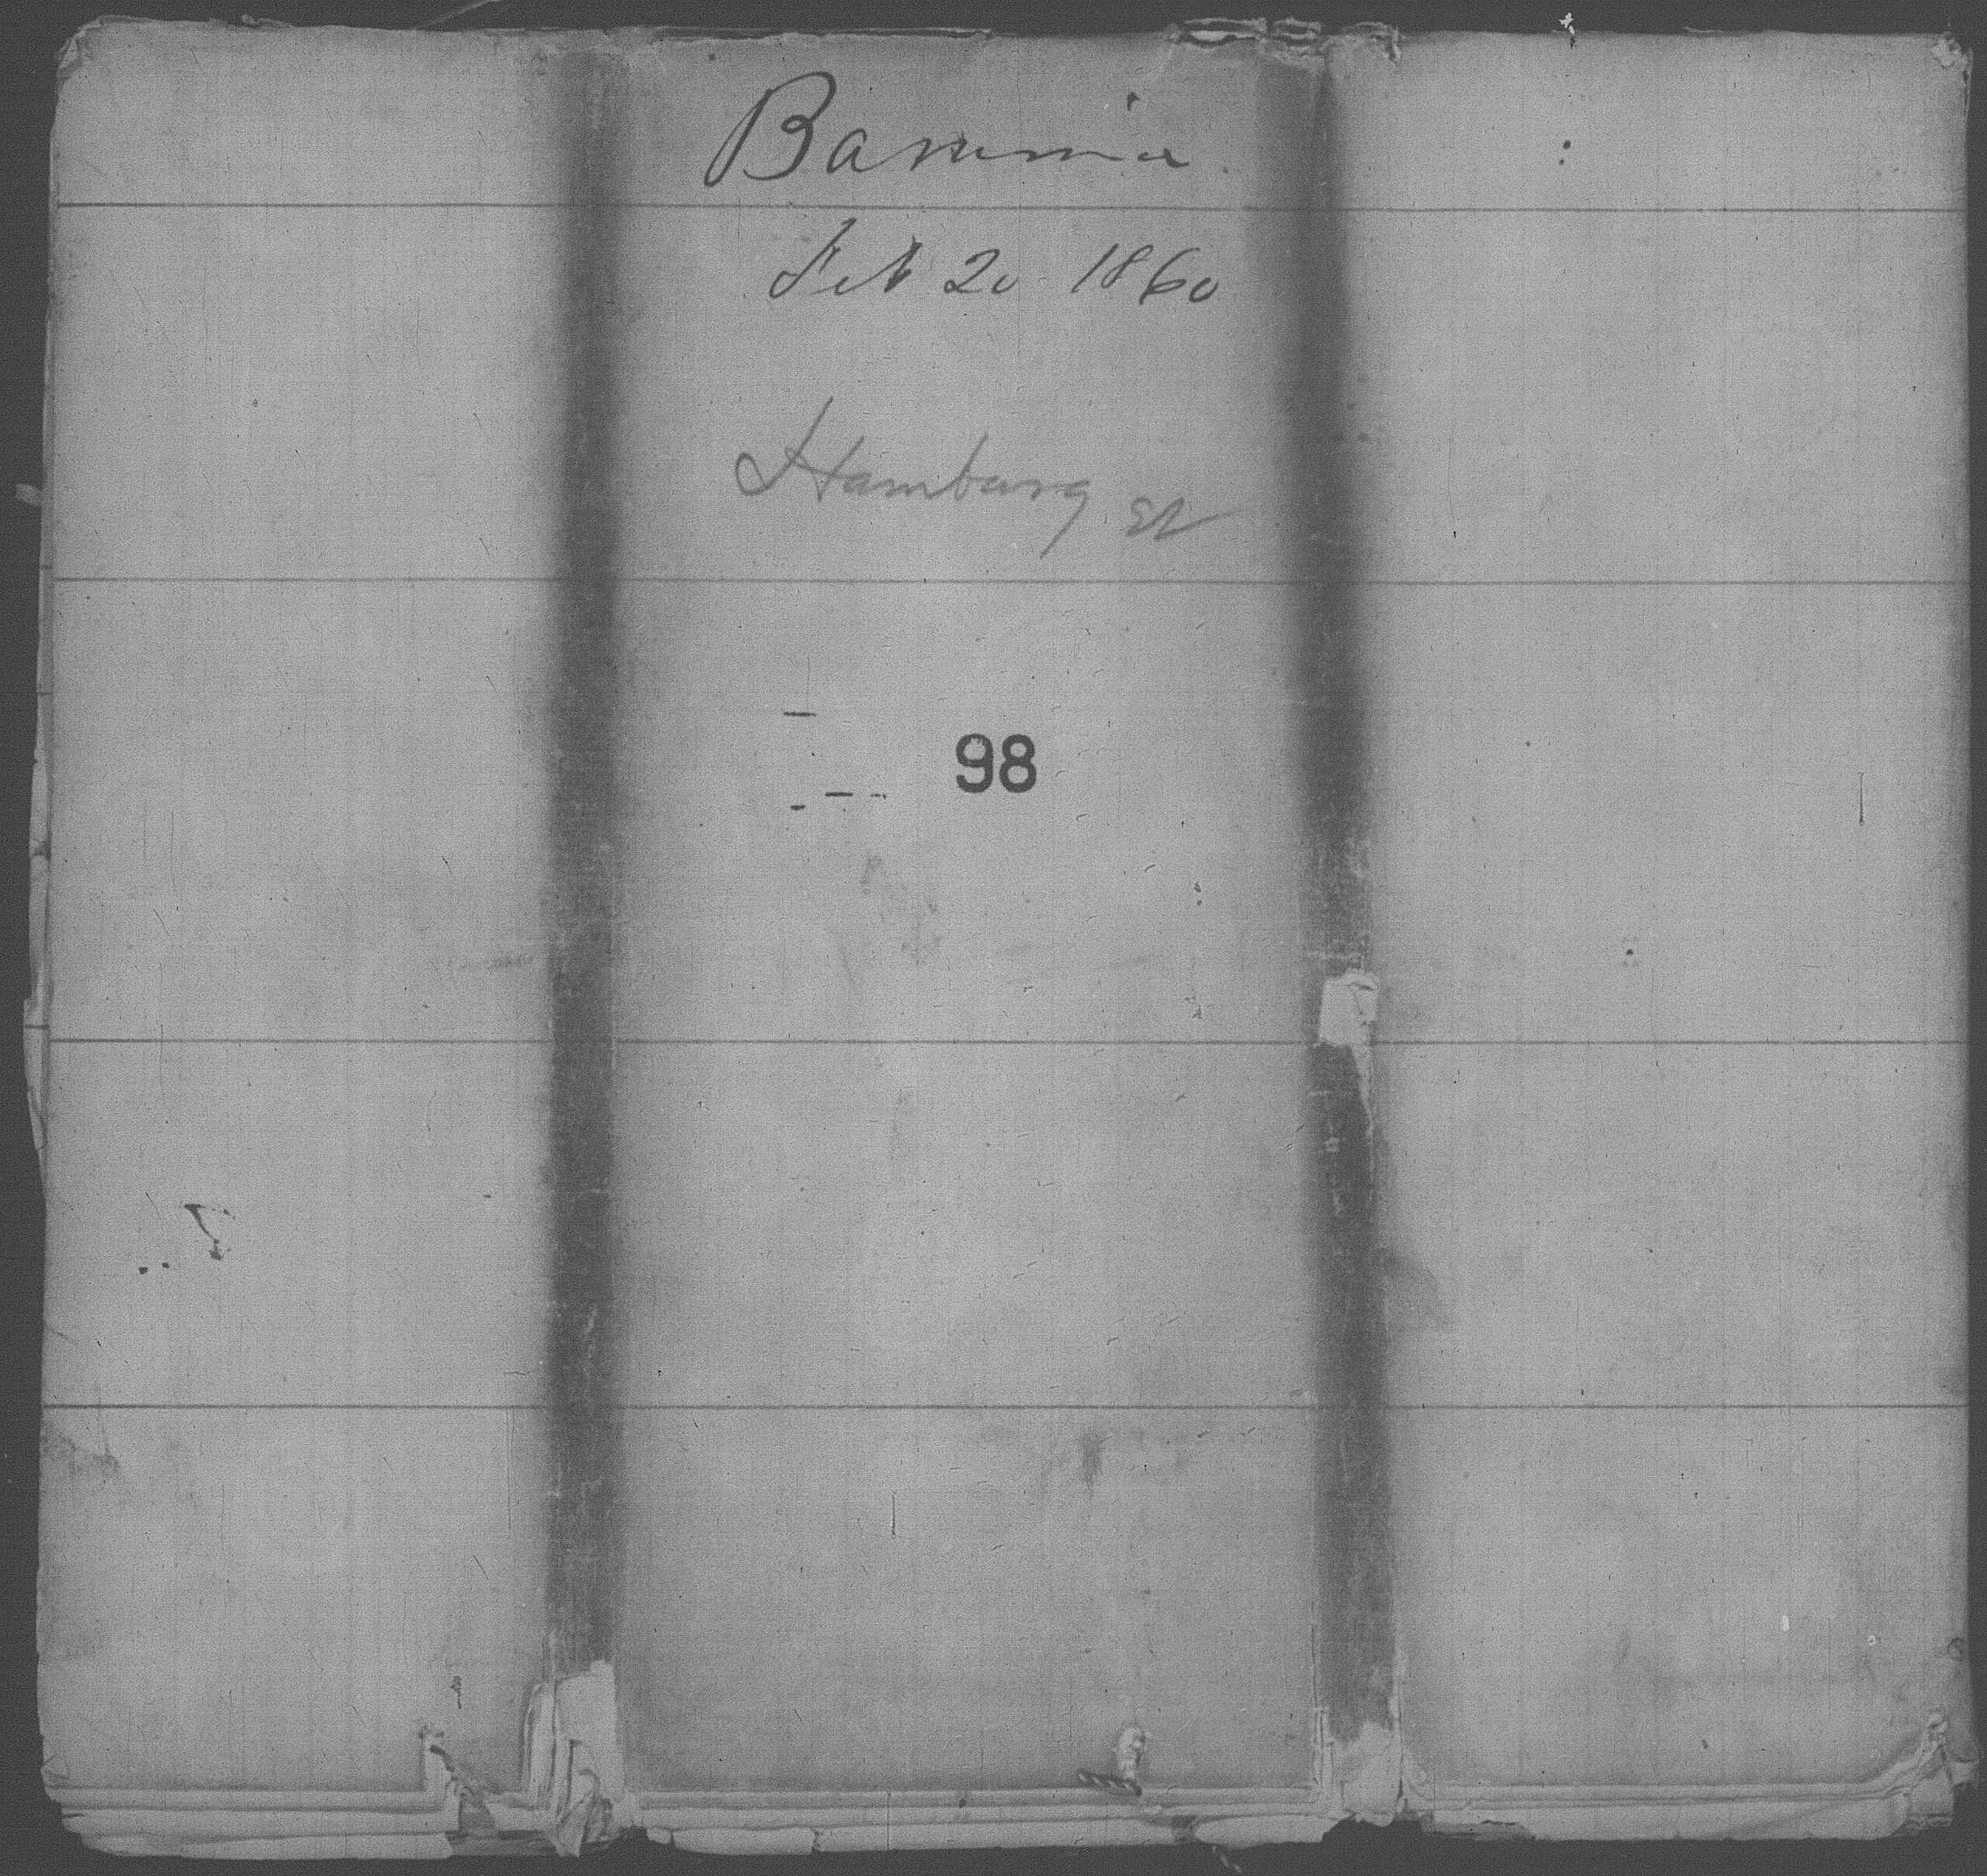 Bavaria.
Feb 20 1860
Hamburg St
98